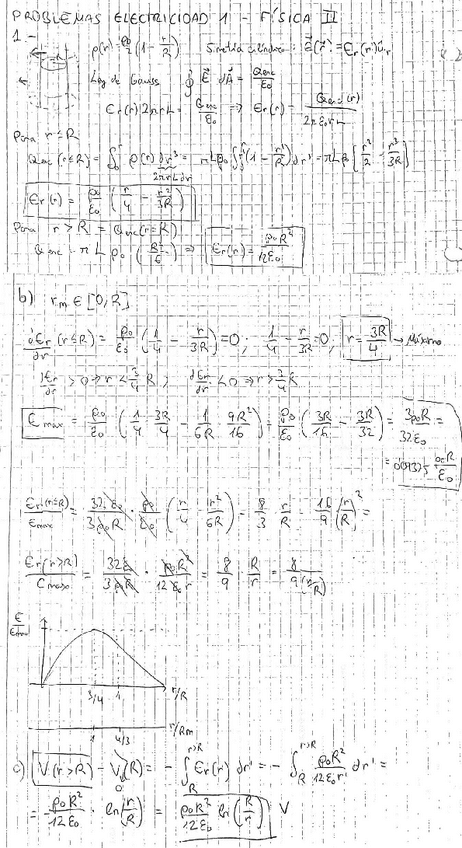 PROBLEMAS ELECTRICIDAD 1 - FÍSICA II
1 -
ρ(r) = ρ₀/2 (1 - r/R) Simetría cilíndrica :
Ley de Gauss ∮ E⃗ dA⃗ = Qenc/ε₀
Er(r) 2πrL = Qenc/ε₀ ⇒ Er(r) = Qenc(r)/2πε₀rL
Para r ≤ R
Er(r) = ρ₀/ε₀ (r/4 - r²/6R)
Para r > R = Qenc(r=R)
Qenc = π L ρ₀ (R²/6) ⇒ Er(r) = ρ₀R²/12ε₀r
b) rm ∈ [0, R]
∂Er/∂r (r≤R) = ρ₀/ε₀ (1/4 - r/3R) = 0 ; 1/4 - r/3R = 0, r = 3R/4 → Máximo
∂Er/∂r > 0 ⇒ r < 3/4 R ; ∂Er/∂r < 0 ⇒ r > 3/4 R
Emax = ρ₀/ε₀ (1/4 3R/4 - 1/6R 9R²/16) = ρ₀/ε₀ (3R/16 - 3R/32) = 3ρ₀R/32ε₀
= 0'09375 ρ₀R/ε₀
Er(r≤R)/Emax = 32ε₀/3ρ₀R · ρ₀/ε₀ (r/4 - r²/6R) = 8/3 r/R - 16/9 (r/R)² =
Er(r>R)/Emax = 32ε₀/3ρ₀R · ρ₀R²/12ε₀r = 8/9 · R/r = 8/9(r/R)
E/Emax
3/4 1 r/R
1 4/3 r/Rm
c) V(r>R) - V(R) = - ∫ Er(r) dr' = - ∫ ρ₀R²/12ε₀r' dr' =
0
= -ρ₀R²/12ε₀ · ln(r/R) = ρ₀R²/12ε₀ ln(R/r) V